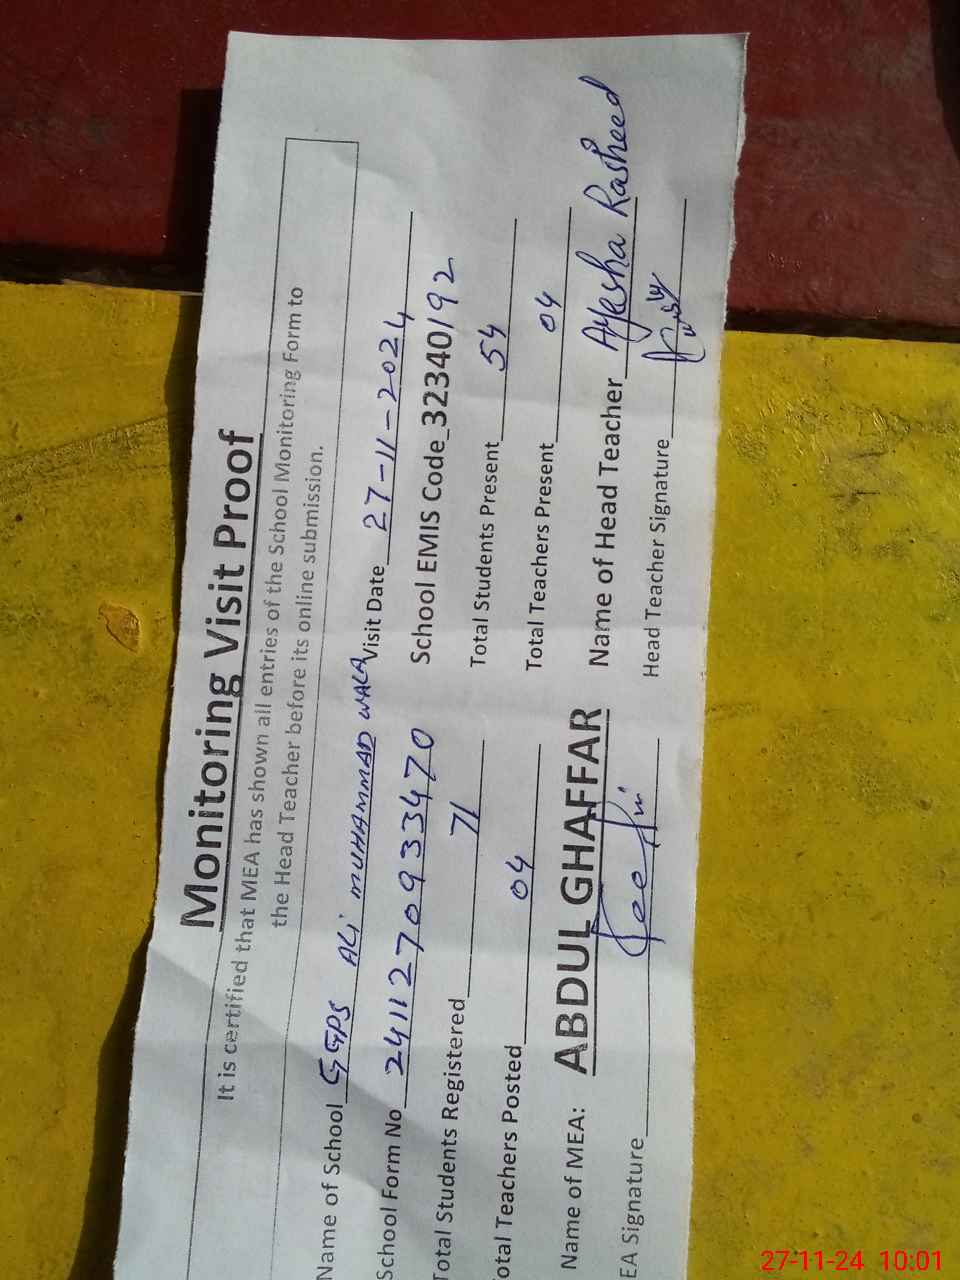 Monitoring Visit Proof
It is certified that MEA has shown all entries of the School Monitoring Form to
the Head Teacher before its online submission.
Name of School GGPS ALi MUHAMMAD WALA Visit Date 27-11-2024
School Form No 241127093470 School EMIS Code_32340192
Total Students Registered 71 Total Students Present 54
Total Teachers Posted 04 Total Teachers Present 04
Name of MEA: ABDUL GHAFFAR Name of Head Teacher Ayesha Rasheed
EA Signature Head Teacher Signature
27-11-24 10:01